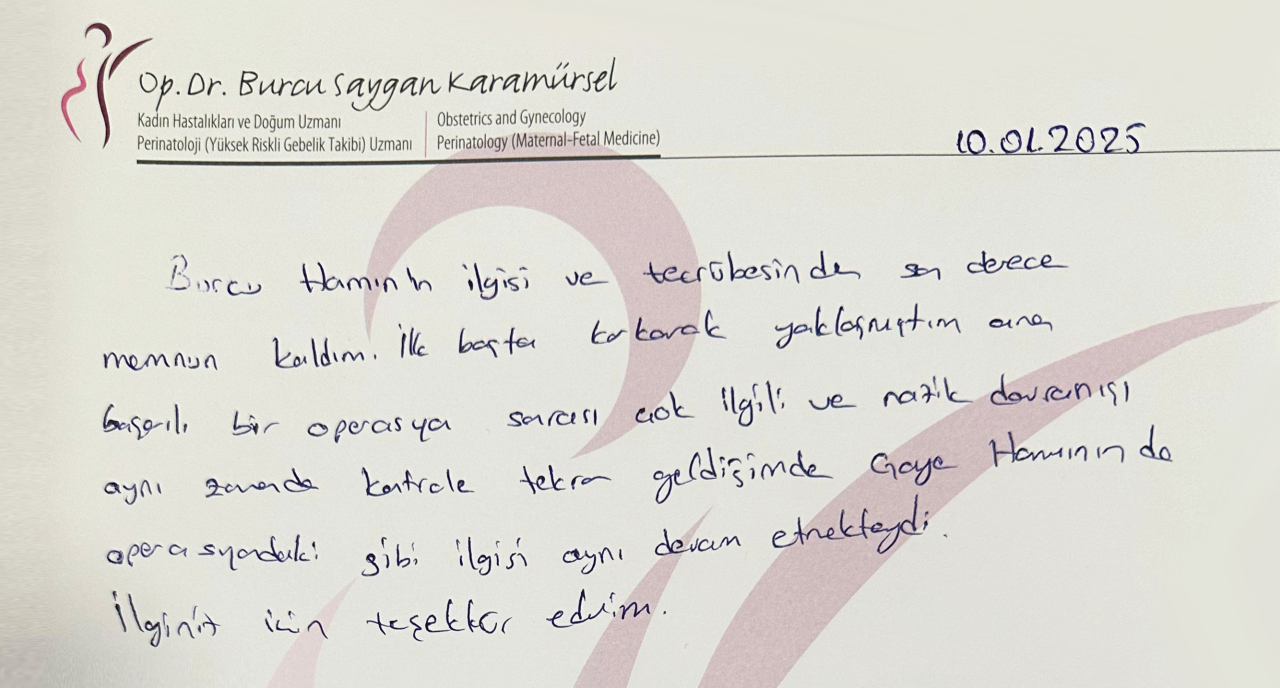 Op. Dr. Burcu Saygan Karamürsel
Kadın Hastalıkları ve Doğum Uzmanı
Perinatoloji (Yüksek Riskli Gebelik Takibi) Uzmanı
Obstetrics and Gynecology
Perinatology (Maternal-Fetal Medicine)
10.01.2025
Burcu Hanımın ilgisi ve tecrübesinden son derece
memnun kaldım. İlk başta korkarak yaklaşmıştım ama
başarılı bir operasyo sorası çok ilgili ve nazik davranışı
aynı zamanda kontrole tekrar geldiğimde Gaye Hanımında
operasyondaki gibi ilgisi aynı devam etmekteydi.
İlginiz için teşekkür ederim.